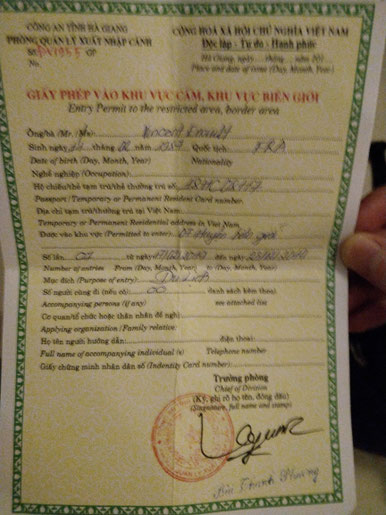 CÔNG AN TỈNH HÀ GIANG
PHÒNG QUẢN LÝ XUẤT NHẬP CẢNH
Số: /GP
No.
CỘNG HOÀ XÃ HỘI CHỦ NGHĨA VIỆT NAM
Độc lập - Tự do - Hạnh phúc
Hà Giang, ngày.... tháng.... năm 201...
Place and date of issue (Day, Month, Year)
GIẤY PHÉP VÀO KHU VỰC CẤM, KHU VỰC BIÊN GIỚI
Entry Permit to the restricted area, border area
Ông/bà (Mr, Ms) Vincent
Sinh ngày tháng năm Quốc tịch FRA
Date of birth (Day, Month, Year) Nationality
Nghề nghiệp (Occupation):
Hộ chiếu/thẻ tạm trú/thẻ thường trú số
Passport/ Temporary or Permanent Resident Card number:
Địa chỉ tạm trú/thường trú tại Việt Nam:
Temporary or Permanent Residential address in Viet Nam
Được vào khu vực (Permitted to enter): huyện biên giới
Số lần từ ngày đến ngày
Number of entries From (Day, Month, Year) to (Day, Month, Year)
Mục đích (Purpose of entry) Du lịch
Số người cùng đi (nếu có): 00 (danh sách kèm theo)
Accompanying persons (if any) see attached list
Cơ quan/tổ chức hoặc thân nhân đề nghị:
Applying organization / Family relative:
Họ tên người hướng dẫn: điện thoại:
Full name of accompanying individual (s) Telephone number
Giấy chứng minh nhân dân số (Indentily Card number):
Trưởng phòng
Chief of Division
(Ký, ghi rõ họ tên, đóng dấu)
(Signature, full name and stamp)
Thanh